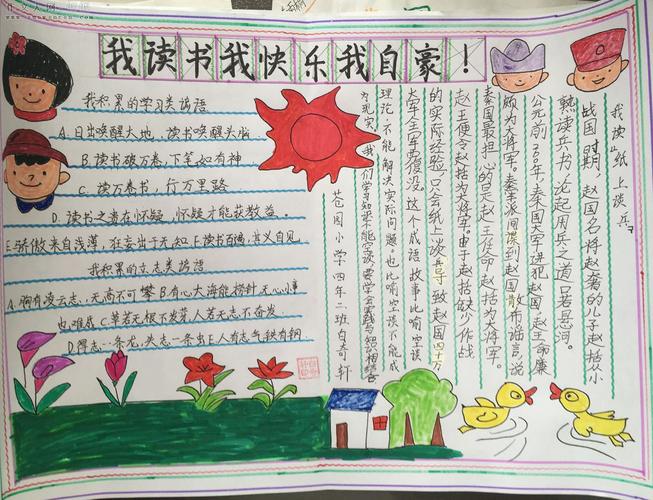 我读书我快乐我自豪！
我积累的学习类谚语
A.日出唤醒大地，读书唤醒头脑
B.读书破万卷，下笔如有神
C.读万卷书，行万里路
D.读书之者在怀疑，怀疑才能获教益。
E.骄傲来自浅薄，狂妄出于无知 F.读书百遍，其义自见
我积累的立志类谚语
A.胸有凌云志，无高不可攀 B.有心大海能捞针 无心小事
也难成 C.草若无根不发芽 人若无志不奋发
D.得志一条龙，失志一条虫 E.人有志气 铁有钢
我读《纸上谈兵》
战国时期，赵国名将赵奢的儿子赵括从小
熟读兵书，论起用兵之道口若悬河。
公元前260年，秦国大军进犯赵国，赵王命廉
颇为大将军。秦军派间谍到赵国散布谣言，说
秦国最担心的是赵王任命赵括为大将军。
赵王便令赵括为大将军。由于赵括缺少作战
的实际经验，只会纸上谈兵，导致赵国四十万
大军全军覆没。这个成语故事比喻空谈
理论，不能解决实际问题，也比喻空谈不能成
为现实。我们学习知识不能空谈，要学会实践与知识相结合
苍园小学四年二班 白奇轩